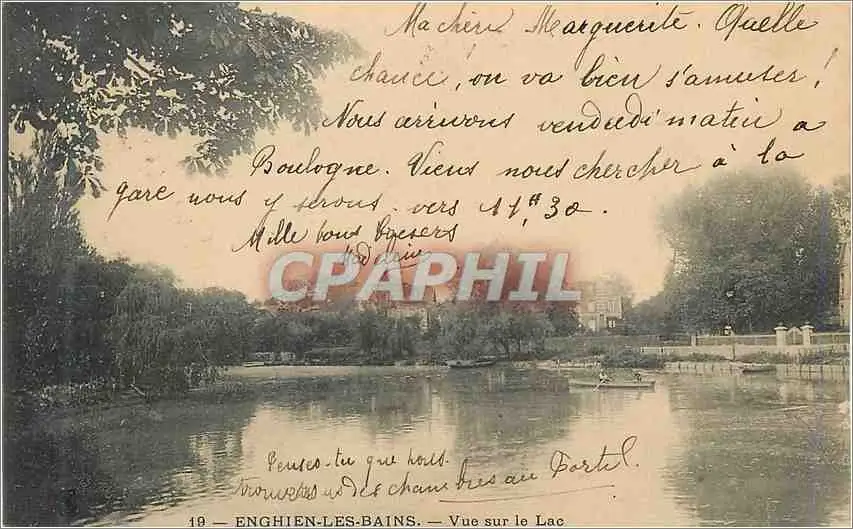 Ma chère Marguerite. Quelle
chance, on va bien s'amuser!
Nous arrivons vendredi matin a
Boulogne. Viens nous chercher à la
gare nous y serons vers 11H30.
Mille bons baisers
Madeleine
CPAPHIL
Penses-tu que nous
trouverons des chambres au Portel.
19 — ENGHIEN-LES-BAINS. — Vue sur le Lac